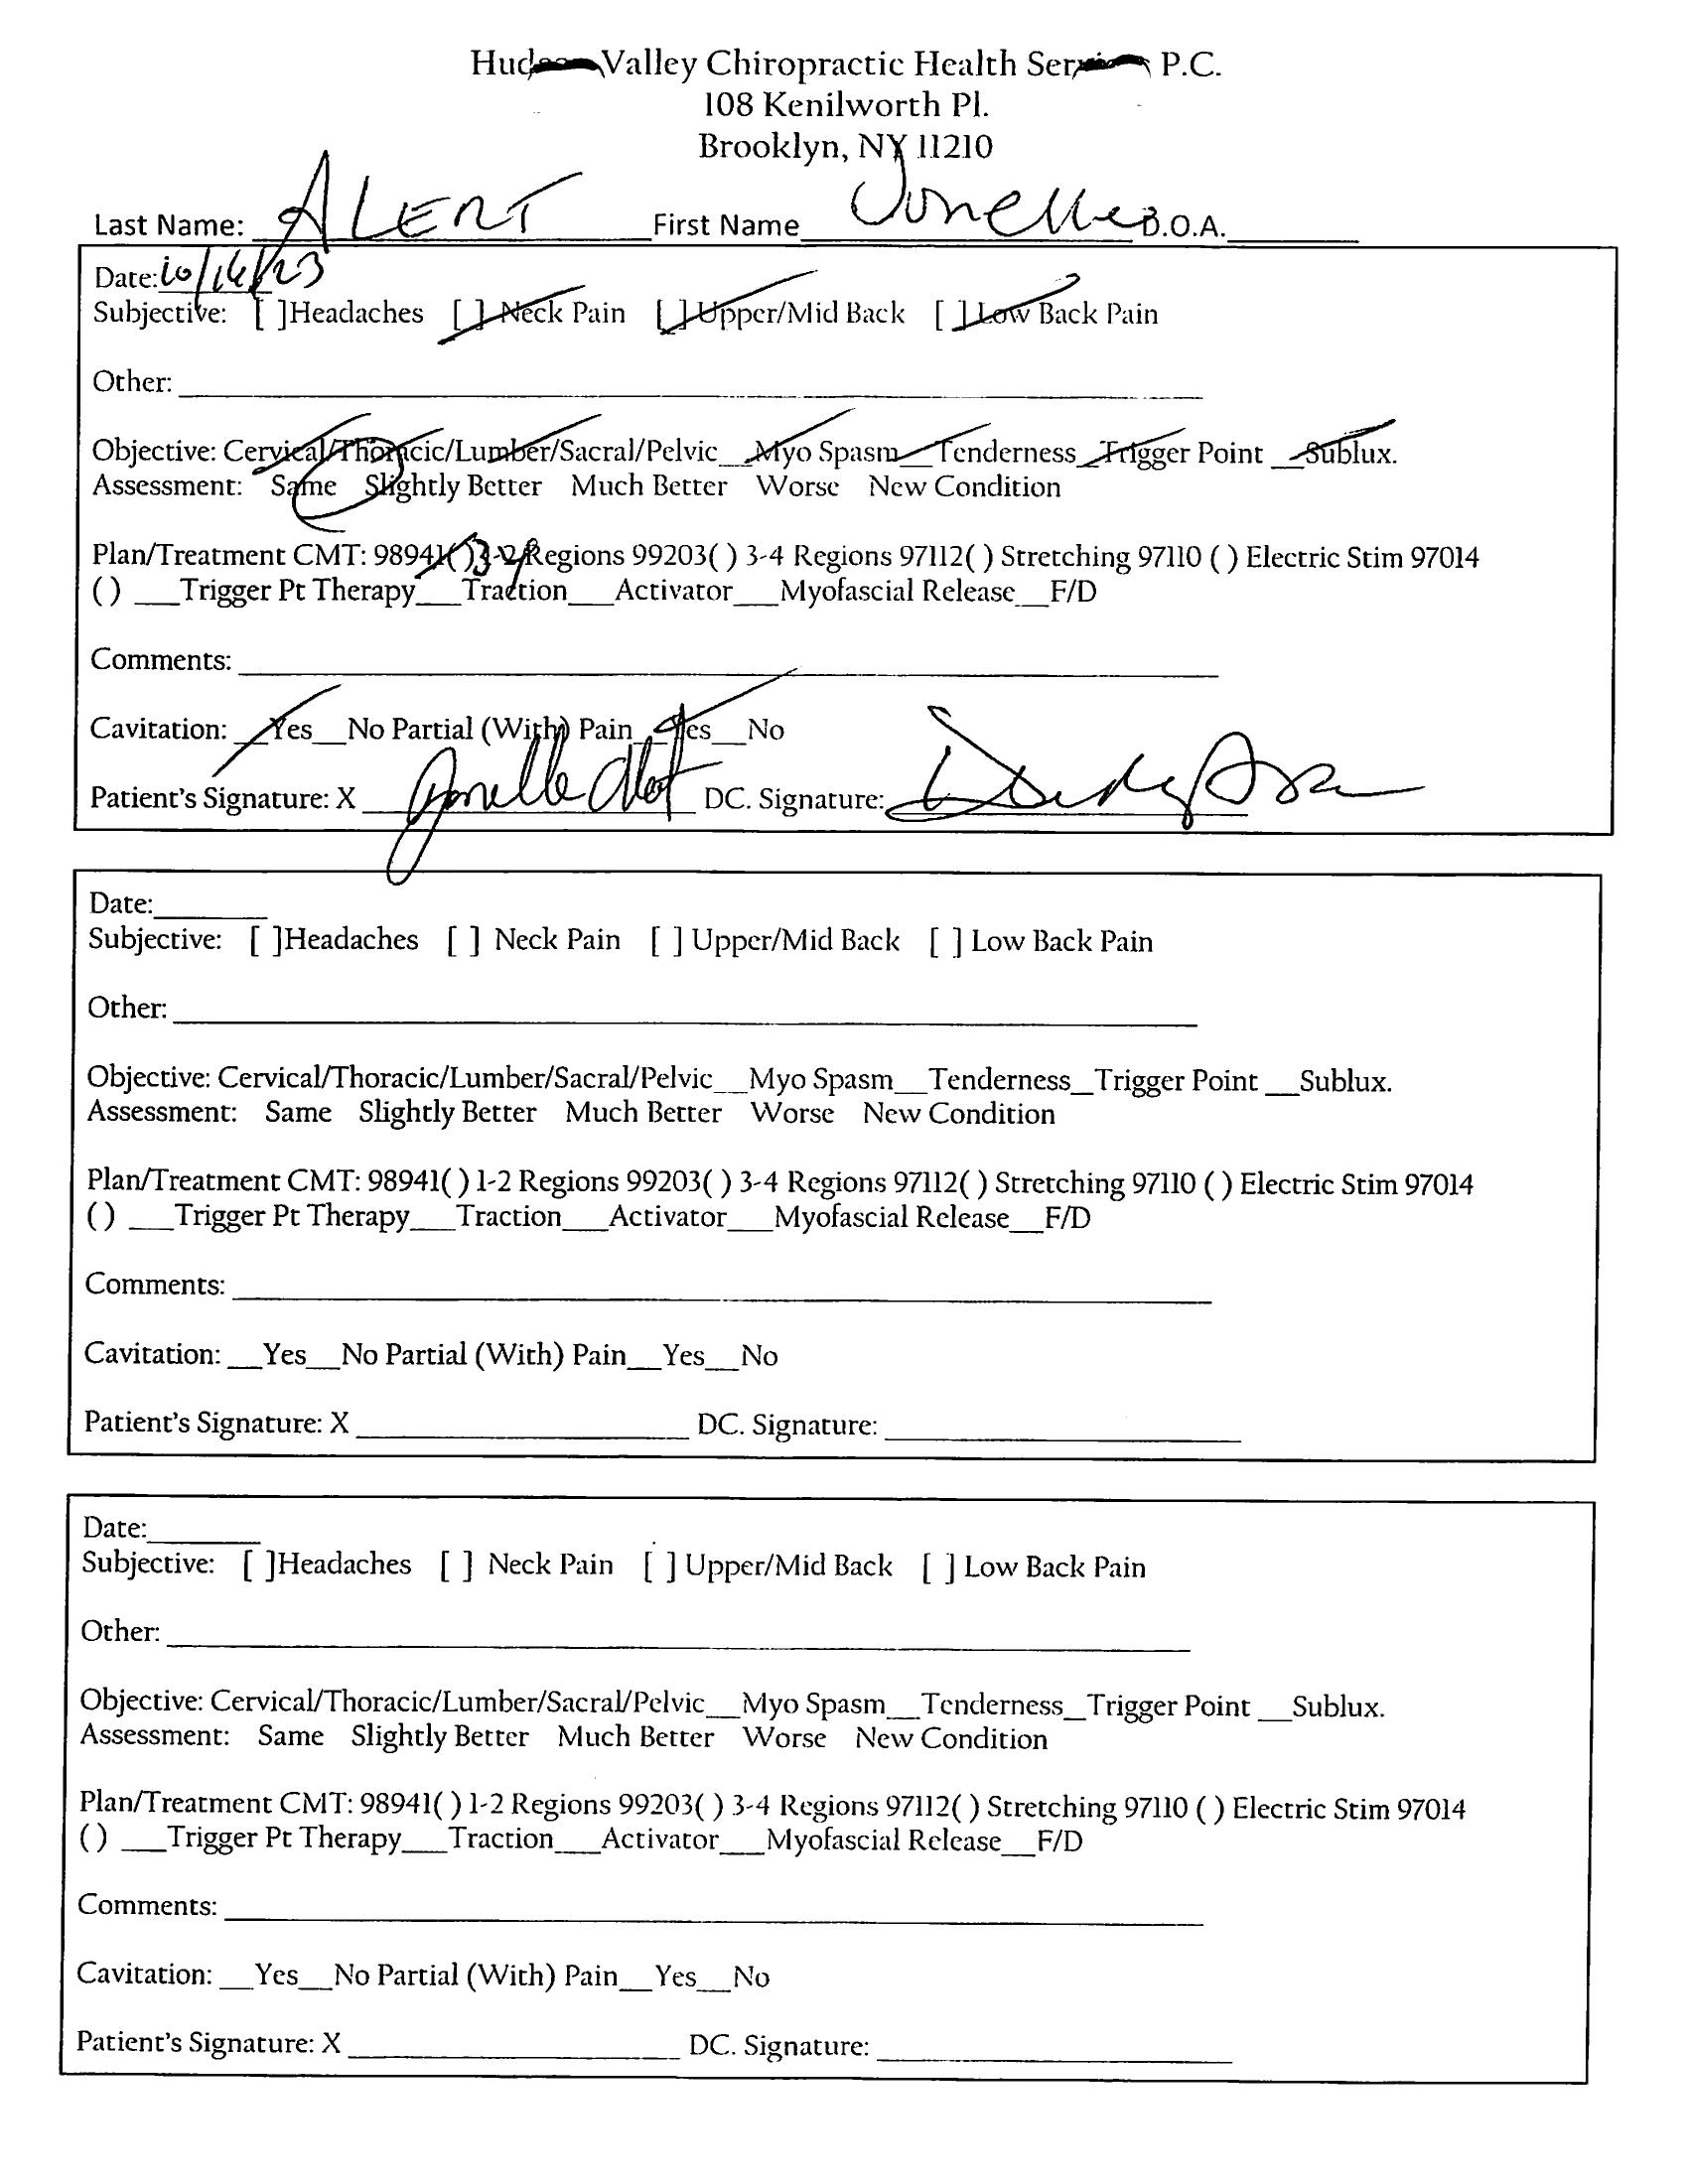 Hudson Valley Chiropractic Health Services P.C.
108 Kenilworth Pl.
Brooklyn, NY 11210
Last Name: ALERT First Name Jonelle D.O.A.
Date: 10/16/23
Subjective: [ ]Headaches [ ] Neck Pain [ ] Upper/Mid Back [ ] Low Back Pain
Other:
Objective: Cervical/Thoracic/Lumber/Sacral/Pelvic__Myo Spasm__Tenderness_Trigger Point __Sublux.
Assessment: Same Slightly Better Much Better Worse New Condition
Plan/Treatment CMT: 98941( ) 3-4 Regions 99203( ) 3-4 Regions 97112( ) Stretching 97110 ( ) Electric Stim 97014
( ) ___Trigger Pt Therapy___Traction___Activator___Myofascial Release__F/D
Comments:
Cavitation: __Yes__No Partial (With) Pain__Yes__No
Patient's Signature: X Jonelle Alert DC. Signature:
Date:
Subjective: [ ]Headaches [ ] Neck Pain [ ] Upper/Mid Back [ ] Low Back Pain
Other:
Objective: Cervical/Thoracic/Lumber/Sacral/Pelvic__Myo Spasm__Tenderness_Trigger Point __Sublux.
Assessment: Same Slightly Better Much Better Worse New Condition
Plan/Treatment CMT: 98941( ) 1-2 Regions 99203( ) 3-4 Regions 97112( ) Stretching 97110 ( ) Electric Stim 97014
( ) ___Trigger Pt Therapy___Traction___Activator___Myofascial Release__F/D
Comments:
Cavitation: __Yes__No Partial (With) Pain__Yes__No
Patient's Signature: X DC. Signature:
Date:
Subjective: [ ]Headaches [ ] Neck Pain [ ] Upper/Mid Back [ ] Low Back Pain
Other:
Objective: Cervical/Thoracic/Lumber/Sacral/Pelvic__Myo Spasm__Tenderness_Trigger Point __Sublux.
Assessment: Same Slightly Better Much Better Worse New Condition
Plan/Treatment CMT: 98941( ) 1-2 Regions 99203( ) 3-4 Regions 97112( ) Stretching 97110 ( ) Electric Stim 97014
( ) ___Trigger Pt Therapy___Traction___Activator___Myofascial Release__F/D
Comments:
Cavitation: __Yes__No Partial (With) Pain__Yes__No
Patient's Signature: X DC. Signature: